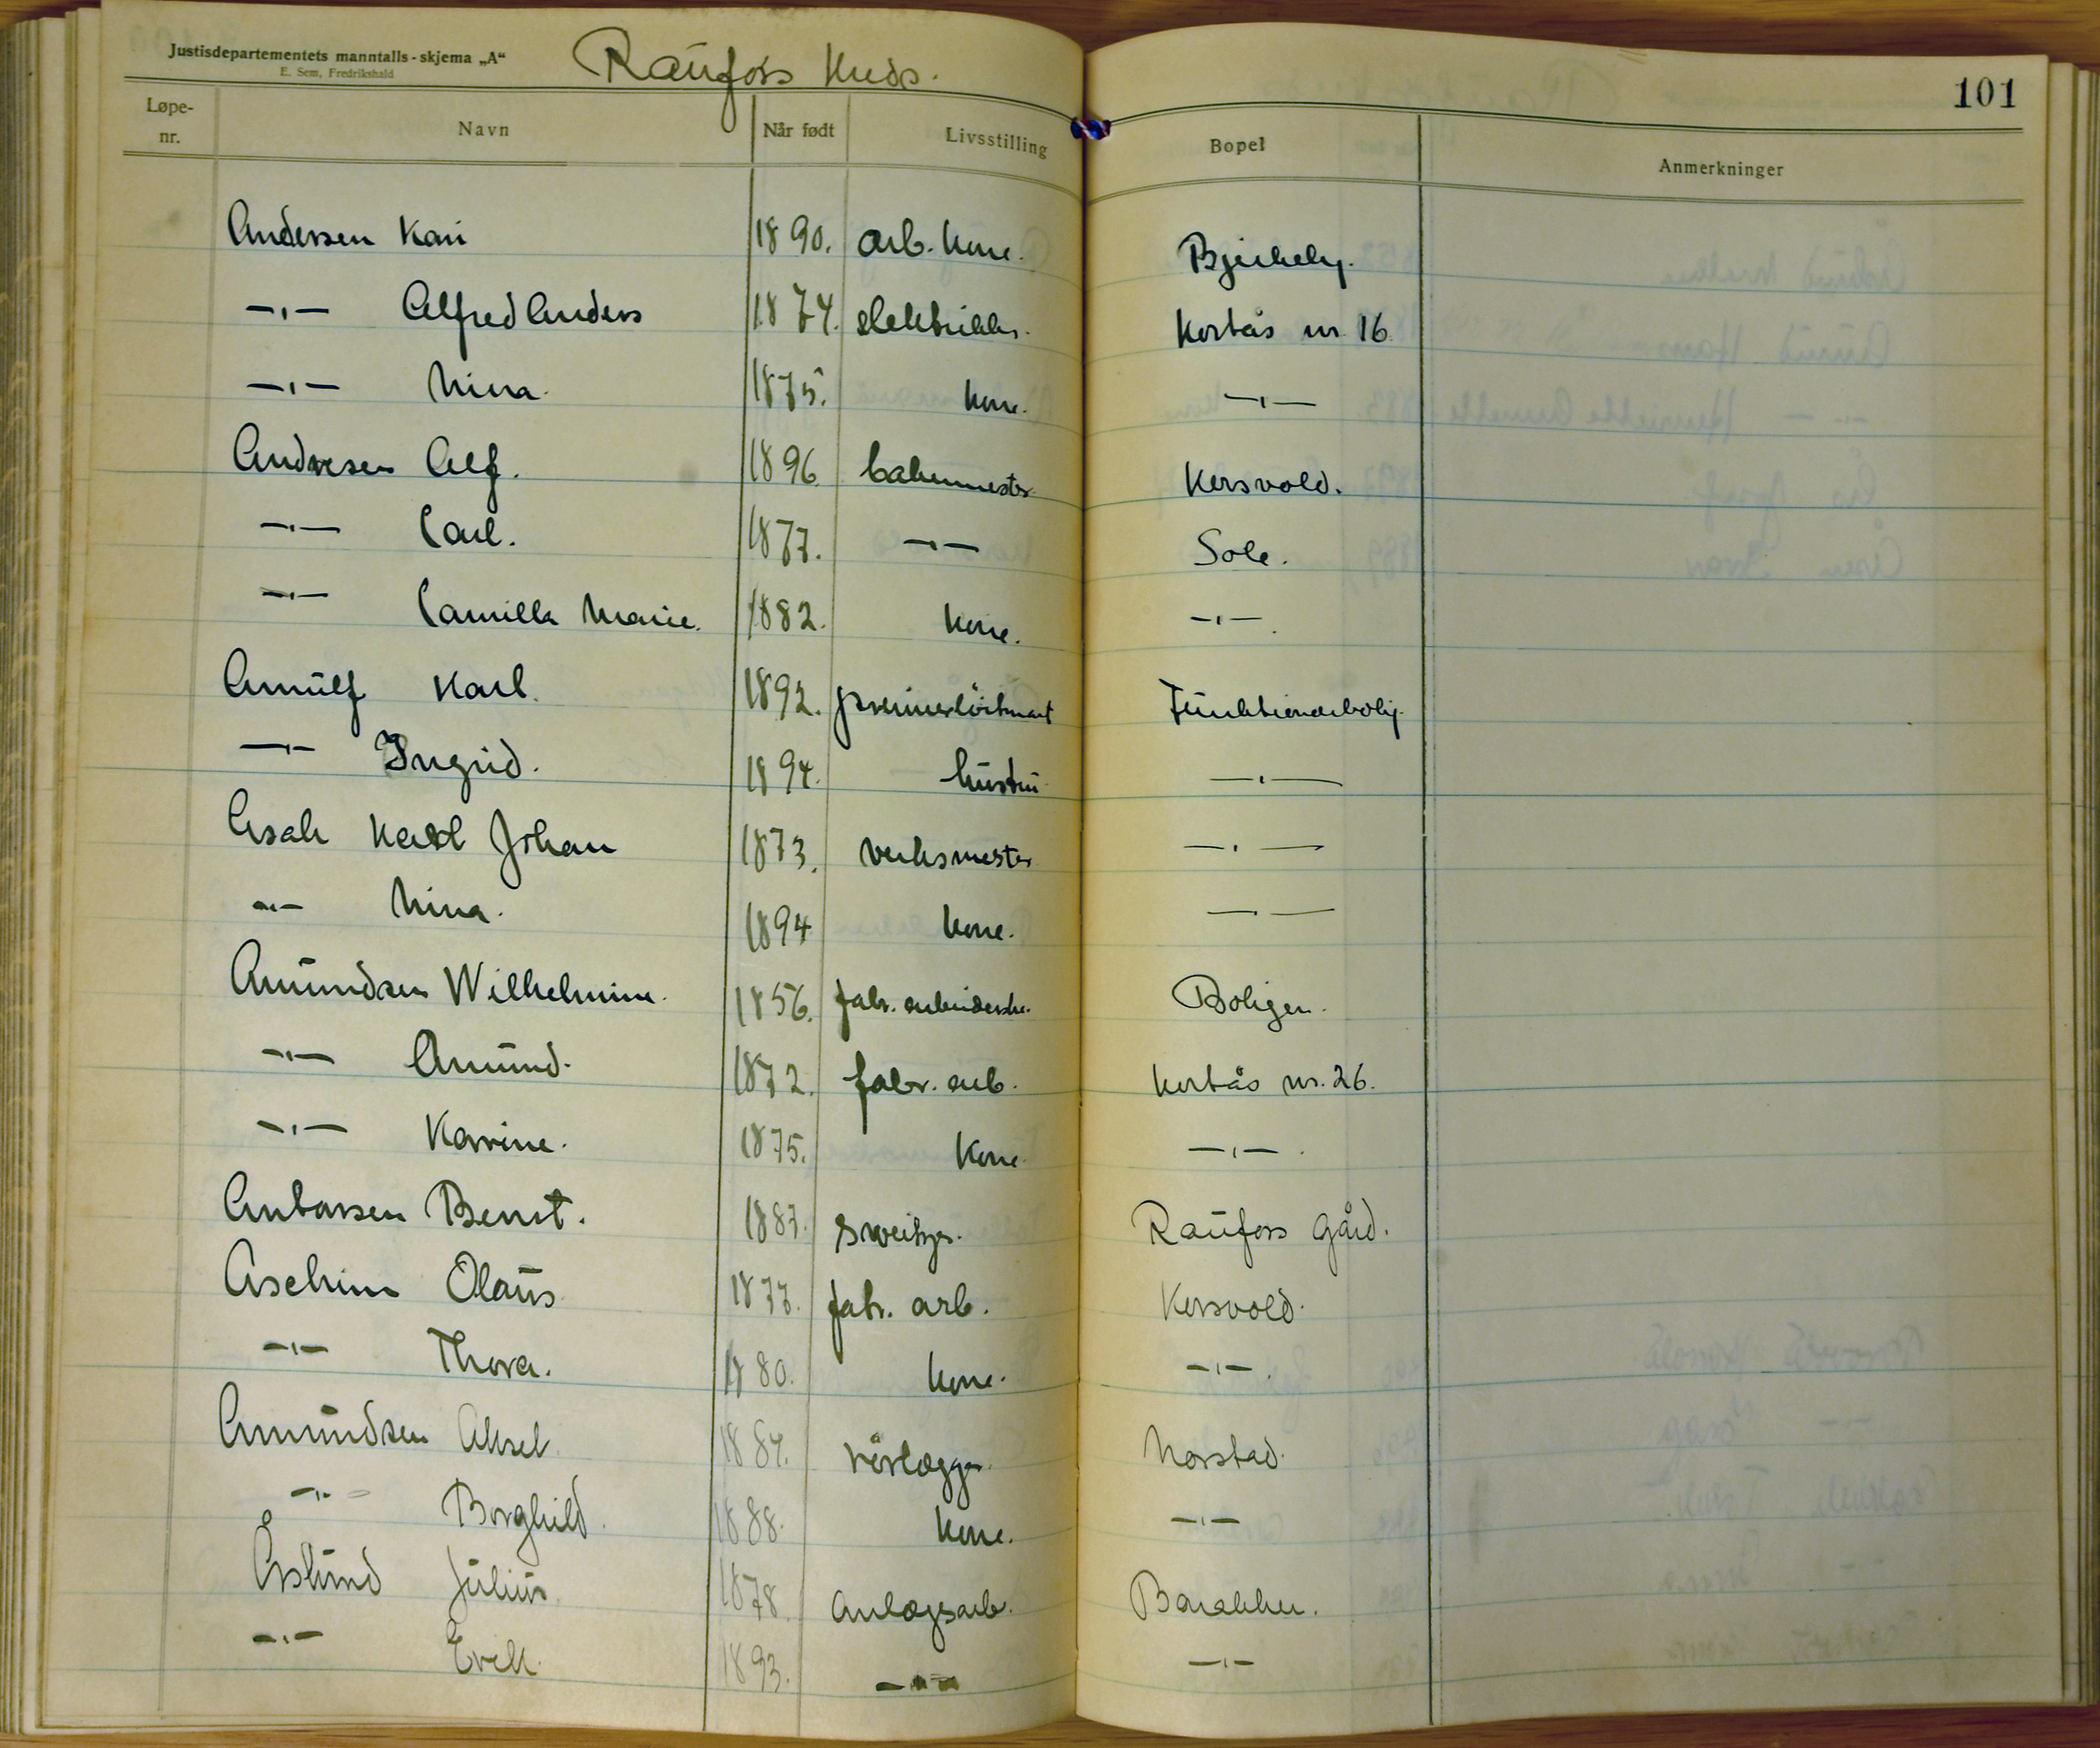 Justisdepartementets manntalls-skjema „A“
E. Sem, Fredrikshald
Raufoss kreds.
101
Løpe-nr. Navn Når født Livsstilling Bopel Anmerkninger
Andersen Kari 1890. arb. kone. Bjerkely.
—„— Alfred Anders 1874. elektriker. Kortås nr. 16
—„— Mina. 1875. kone. —„—
Andresen Alf. 1896 bakermester Kersvold.
—„— Carl. 1877. —„— Sole.
—„— Camilla Marie. 1882. kone. —„—.
Arnulf Karl. 1892. premierløitnant Funktionærbolig.
—„— Ingrid. 1894. hustru —„—
Asak Karl Johan 1873. verksmester —„—
—„— Mina. 1894 kone. —„—
Amundsen Wilhelmine. 1856. fabr. arbeiderske. Boligen.
—„— Amund. 1872. fabr. arb. Kortås nr. 26.
—„— Karine. 1875. Kone —„—.
Bernt. 1887. sveitser. Raufoss Gård.
Aschim Olaus 1877. fabr. arb. Kersvold.
—„— Thora. 1880. kone. —„—.
Amundsen Aksel 1884. rørlægger. Norstad.
—„— Borghild. 1888. kone. —„—
Åslund Julius 1878. Anlægsarb. Barakker.
—„— 1893. —„— —„—